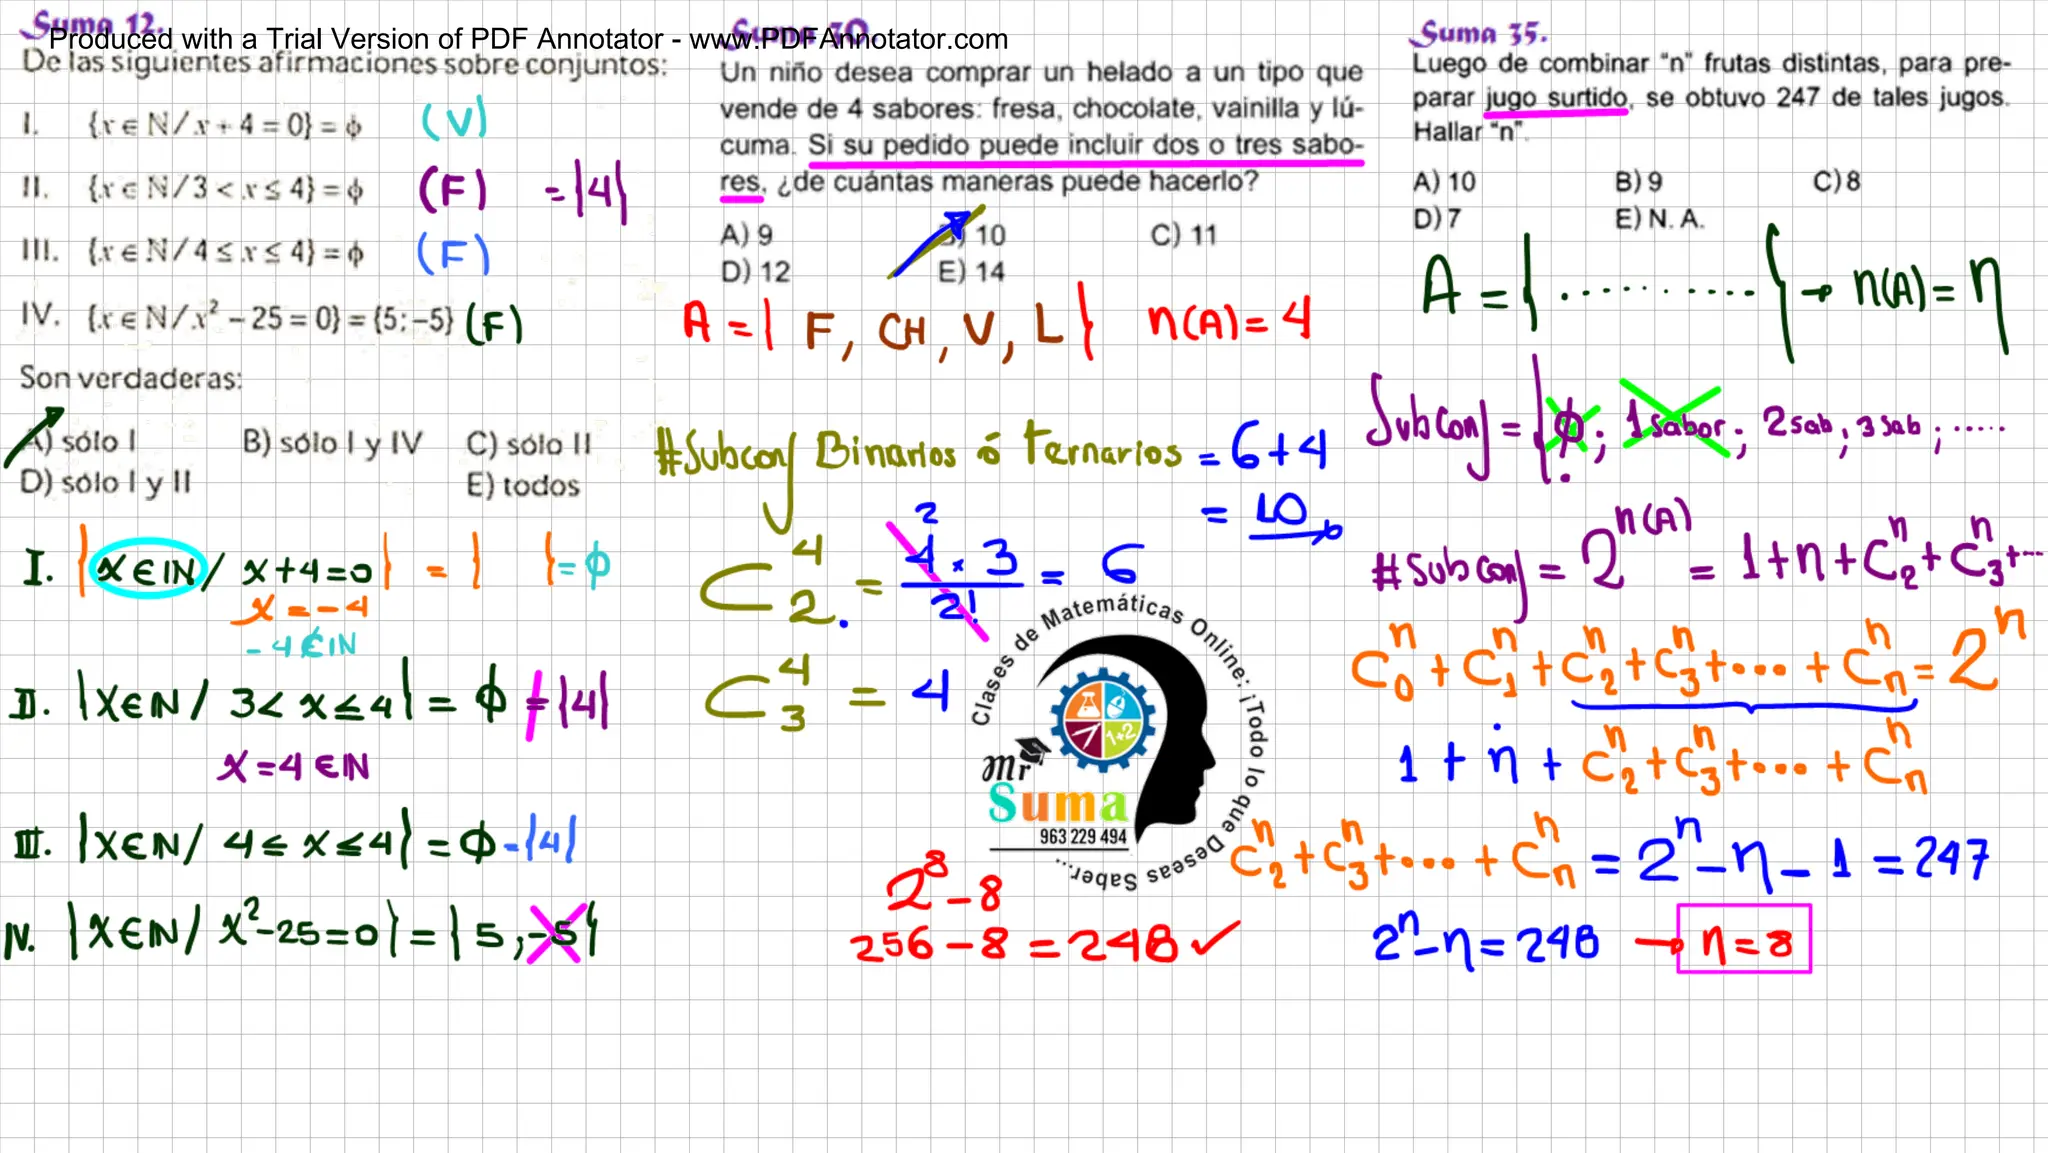 Produced with a Trial Version of PDF Annotator - www.PDFAnnotator.com
Suma 12.
De las siguientes afirmaciones sobre conjuntos:
I. {x ∈ N / x + 4 = 0} = ϕ (V)
II. {x ∈ N / 3 < x ≤ 4} = ϕ (F) = {4}
III. {x ∈ N / 4 ≤ x ≤ 4} = ϕ (F)
IV. {x ∈ N / x² − 25 = 0} = {5; −5} (F)
Son verdaderas:
A) sólo I B) sólo I y IV C) sólo II
D) sólo I y II E) todos
I. { x ∈ IN / x + 4 = 0 } = { } = ϕ
x = −4
−4 ∉ IN
II. {x ∈ IN / 3 < x ≤ 4} = ϕ ≠ {4}
x = 4 ∈ IN
III. {x ∈ IN / 4 ≤ x ≤ 4} = ϕ = {4}
IV. {x ∈ IN / x² − 25 = 0} = {5, −5}
Suma 30.
Un niño desea comprar un helado a un tipo que
vende de 4 sabores: fresa, chocolate, vainilla y lú-
cuma. Si su pedido puede incluir dos o tres sabo-
res, ¿de cuántas maneras puede hacerlo?
A) 9 B) 10 C) 11
D) 12 E) 14
A = { F, CH, V, L } n(A) = 4
#Subconj Binarios ó Ternarios = 6 + 4
= 10
C⁴₂ = 4 × 3 / 2! = 6
2
C⁴₃ = 4
Clases de Matemáticas Online: ¡Todo lo que Deseas Saber...!
mr
Suma
1+2
963 229 494
2⁸ − 8
256 − 8 = 248 ✓
Suma 35.
Luego de combinar "n" frutas distintas, para pre-
parar jugo surtido, se obtuvo 247 de tales jugos.
Hallar "n".
A) 10 B) 9 C) 8
D) 7 E) N. A.
A = { ............ } → n(A) = n
Subconj = { ϕ ; 1 sabor ; 2 sab ; 3 sab ; .....
#Subconj = 2ⁿ⁽ᴬ⁾ = 1 + n + Cⁿ₂ + Cⁿ₃ + ...
Cⁿ₀ + Cⁿ₁ + Cⁿ₂ + Cⁿ₃ + ... + Cⁿₙ = 2ⁿ
1 + n + Cⁿ₂ + Cⁿ₃ + ... + Cⁿₙ
Cⁿ₂ + Cⁿ₃ + ... + Cⁿₙ = 2ⁿ − n − 1 = 247
2ⁿ − n = 248 → n = 8